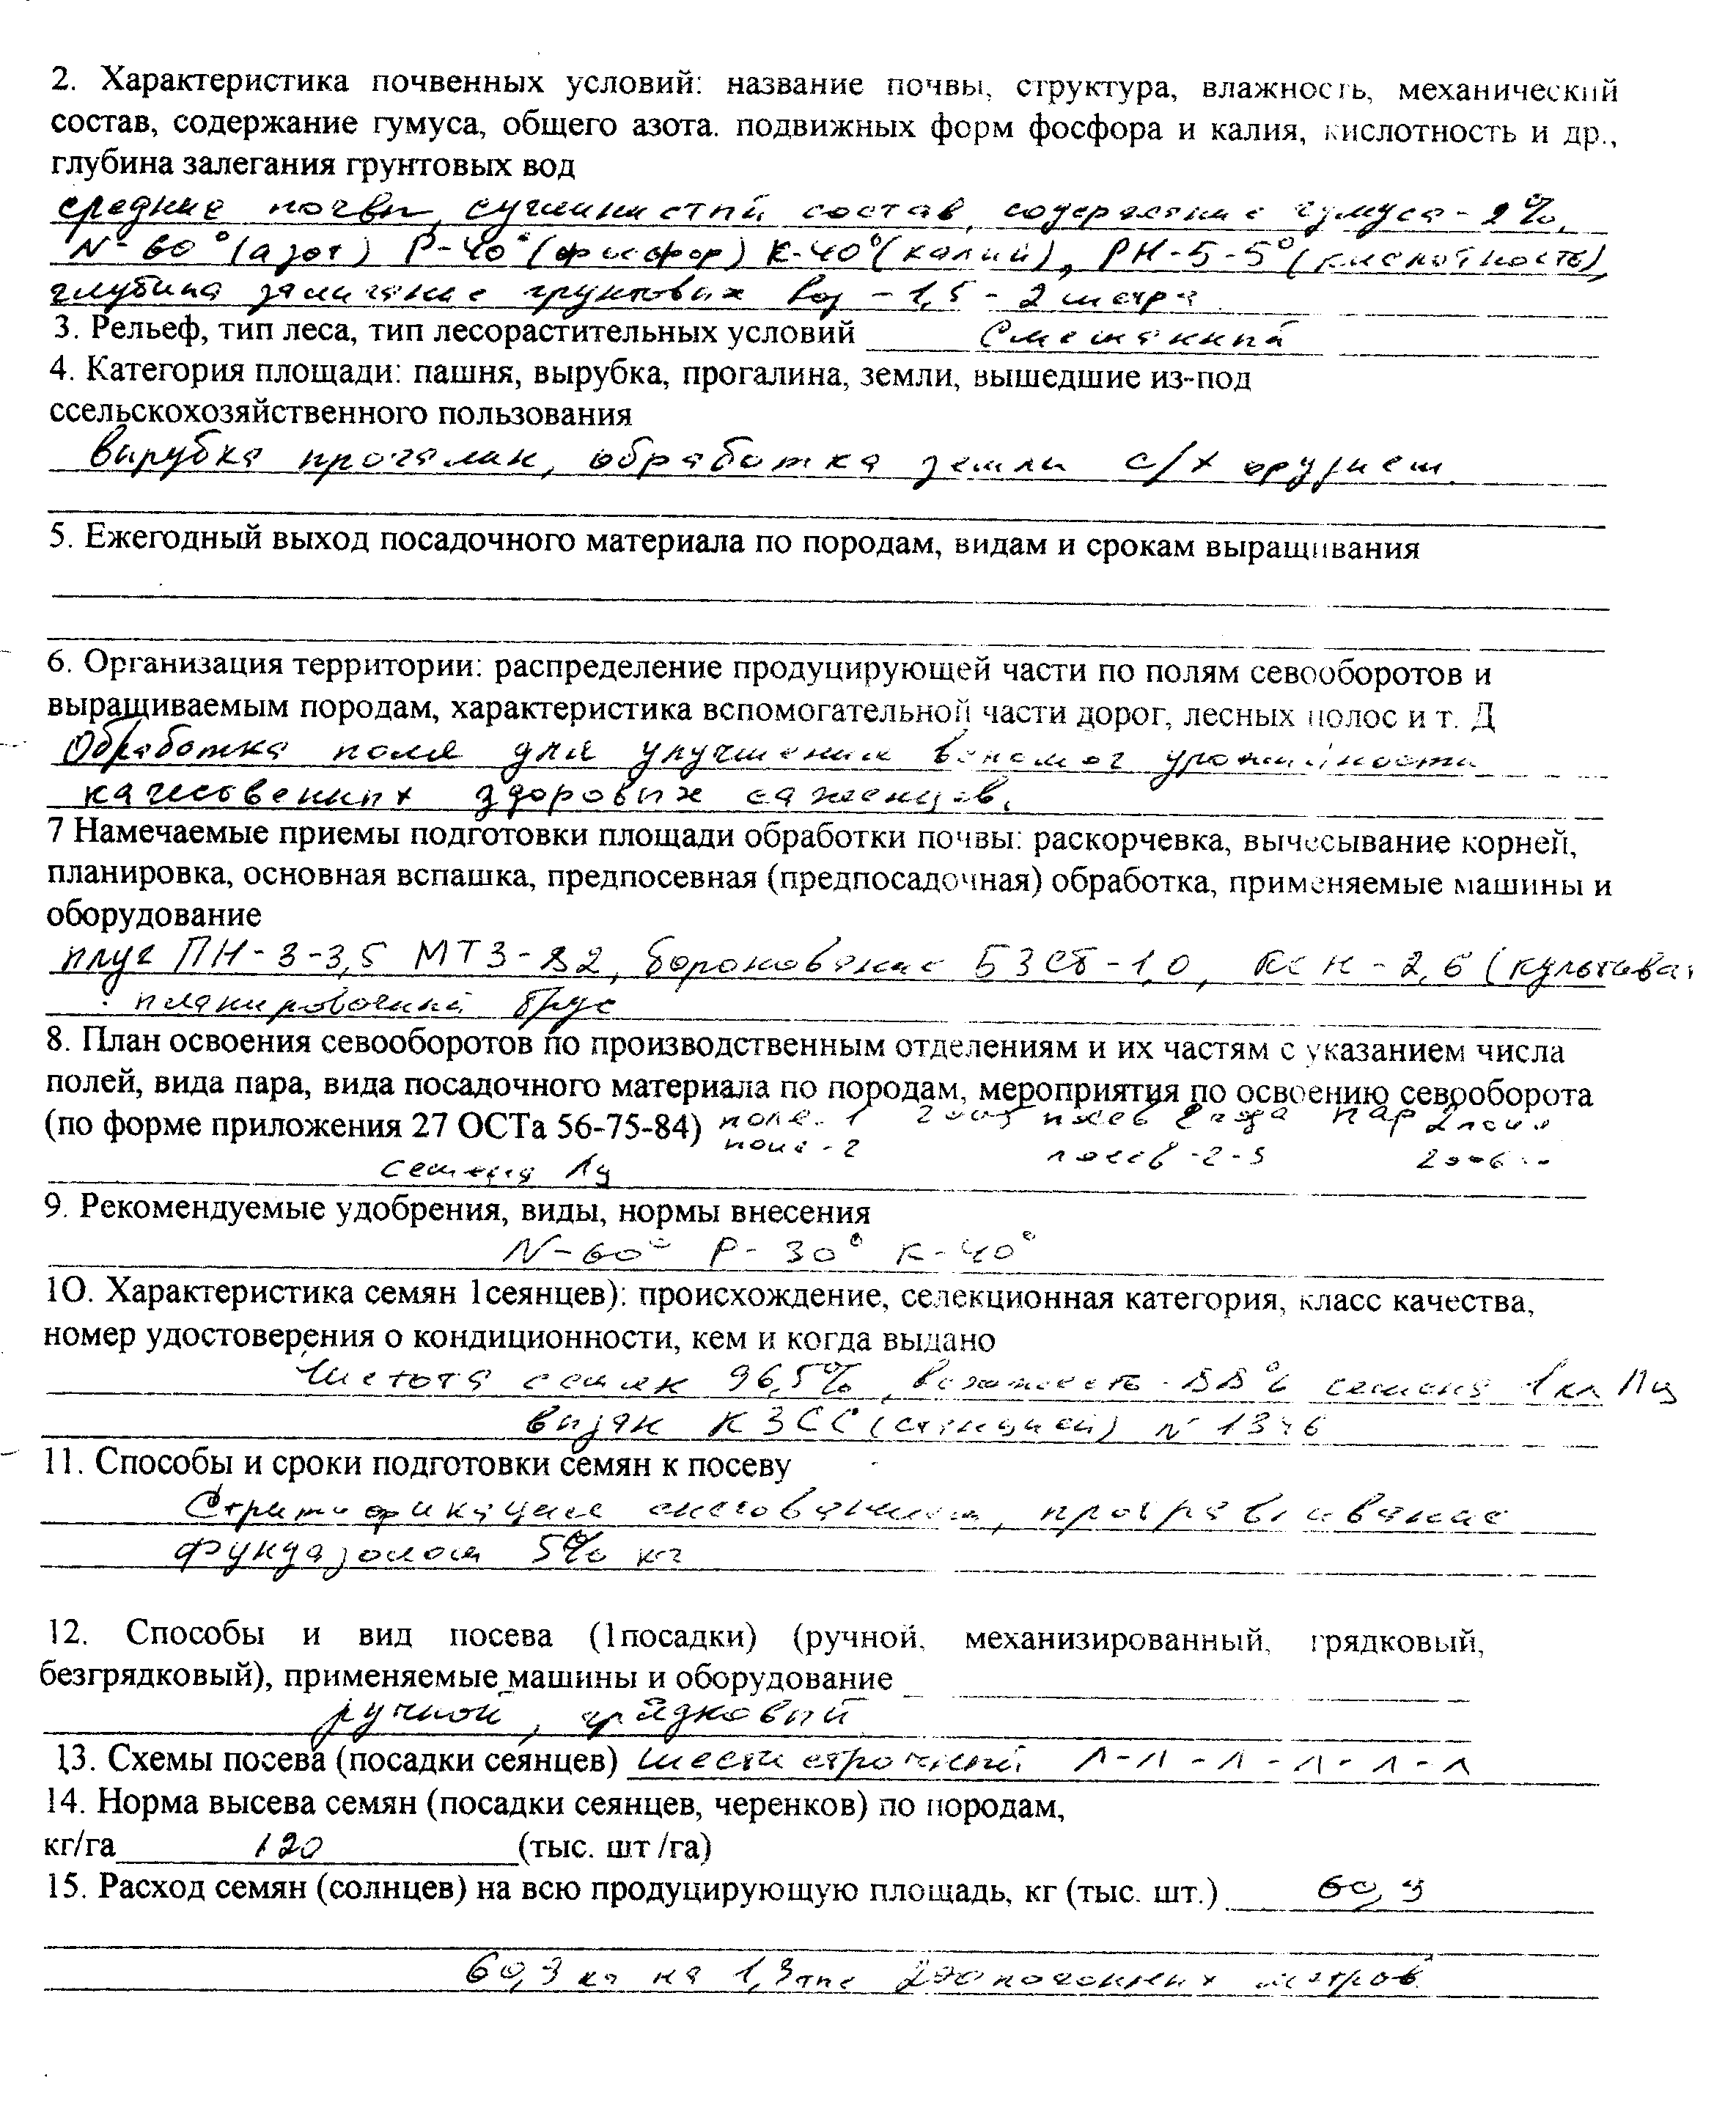 2. Характеристика почвенных условий: название почвы, структура, влажность, механический
состав, содержание гумуса, общего азота. подвижных форм фосфора и калия, кислотность и др.,
глубина залегания грунтовых вод
средние почвы, суглинистый состав, содержание гумуса - 2%,
N - 60° (азот) Р-40° (фосфор) К-40° (калий), РН-5-5° (кислотность),
глубина залигание грунтовых вод - 1,5 - 2 метра
3. Рельеф, тип леса, тип лесорастительных условий Смешанный
4. Категория площади: пашня, вырубка, прогалина, земли, вышедшие из-под
ссельскохозяйственного пользования
вырубка прогалин, обработка земли с/х орузием.
5. Ежегодный выход посадочного материала по породам, видам и срокам выращивания
6. Организация территории: распределение продуцирующей части по полям севооборотов и
выращиваемым породам, характеристика вспомогательной части дорог, лесных полос и т. Д
Обработка поля для улучшения вспомог урожайности
качественных здоровых саженцев.
7 Намечаемые приемы подготовки площади обработки почвы: раскорчевка, вычесывание корней,
планировка, основная вспашка, предпосевная (предпосадочная) обработка, применяемые машины и
оборудование
плуг ПН-3-3,5 МТЗ-82, боронование БЗСБ-1,0, (культива
планировочный брус
8. План освоения севооборотов по производственным отделениям и их частям с указанием числа
полей, вида пара, вида посадочного материала по породам, мероприятия по освоению севрооборота
(по форме приложения 27 ОСТа 56-75-84) поле. 1 2005 пар
поле - 2 посев - 2-5 2006
семена Лц
9. Рекомендуемые удобрения, виды, нормы внесения
N-60° Р- 30° К-40°
1О. Характеристика семян 1сеянцев): происхождение, селекционная категория, класс качества,
номер удостоверения о кондиционности, кем и когда выдано
Чистота семян 96,5%, всхожесть - 88% семена 1кл Лц
выдан КЗСС (станцией) N
11. Способы и сроки подготовки семян к посеву
Стратификация снегованием, протравливание
фундазолом 5% кг
12. Способы и вид посева (1посадки) (ручной, механизированный, грядковый,
безгрядковый), применяемые машины и оборудование
ручной, грядковый
13. Схемы посева (посадки сеянцев) шести строчный Л-Л-Л-Л-Л-Л
14. Норма высева семян (посадки сеянцев, черенков) по породам,
кг/га 120 (тыс. шт /га)
15. Расход семян (солнцев) на всю продуцирующую площадь, кг (тыс. шт.) 60,3
60,3 кг на погонных метров